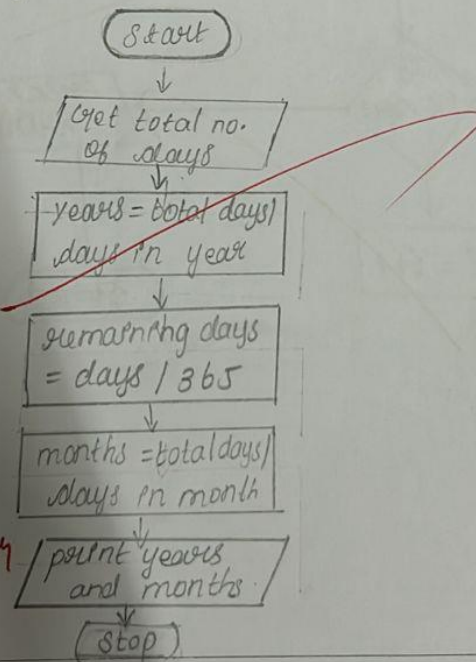 Start
Get total no.
of days
years = total days /
days in year
remaining days
= days / 365
months = total days /
days in month
print years
and months.
Stop